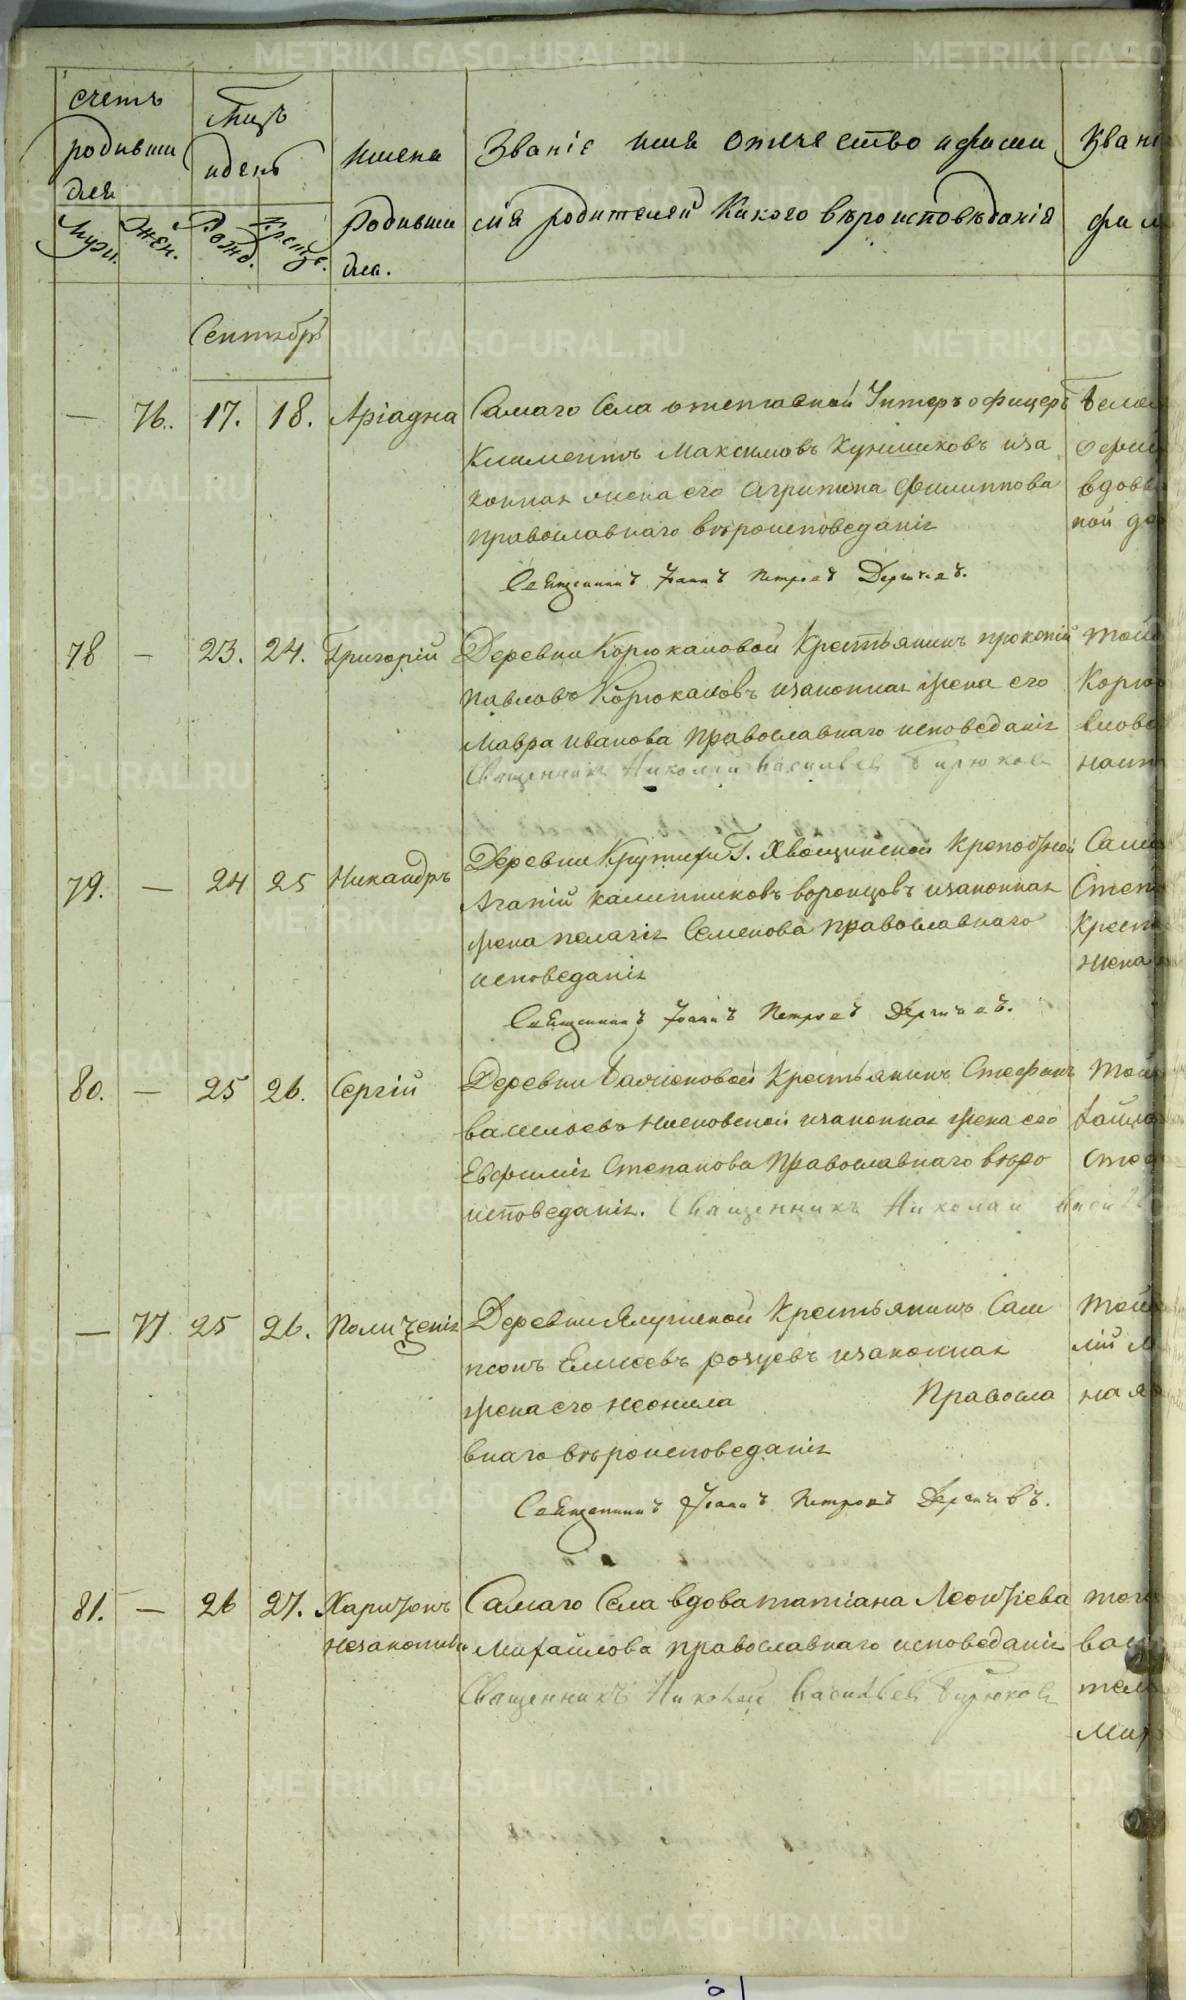 счетъ
родивши
хся
Муж.
Жен.
Мцъ
и день
Рожд.
Крещ.
имена
Родивши
хся.
Званіе имя отчество и фами
лія родителей Какого вѣроисповѣданія
Зван
фам
Сентябрь
— 76. 17. 18. Аріадна
Самаго Села отставной Унтеръ офицеръ
Климентъ Максимовъ Куншиковъ иза
конная жена его Агрипина Филиппова
православнаго вѣроисповеданія
Священникъ Іоаннъ Петровъ Дергачевъ.
78 — 23. 24. Григорій
Деревни Корюкаловой Крестьянинъ прокопій
павловъ Корюкаловъ изаконная жена его
Мавра иванова православнаго исповеданія
Священникъ Николай Васильевъ Бирюковъ
79. — 24 25 Никандръ
Деревни Крутихи Г. Хвощинской Крепостной
Агапій калинниковъ воронцовъ изаконная
жена пелагія Семенова православнаго
исповеданія
Священникъ Іоаннъ Петровъ Дергачевъ.
80. — 25 26. Сергій
Деревни Крестьянинъ Стефанъ
васильевъ изаконная жена его
Евфимія Степанова Православнаго вѣро
исповеданія. Священникъ Николай
— 77 25 26. Поликсенія
Деревни Ялуниной Крестьянинъ Сам
псонъ Елисеевъ изаконная
жена его неонила Правосла
внаго вѣроисповеданія
Священникъ Іоаннъ Петровъ Дергачевъ.
81. — 26 27. Харитонъ
незаконный
Самаго Села вдова татіана Леонтіева
Михайлова православнаго исповеданія
Священникъ Николай Васильевъ Бирюковъ
METRIKI.GASO-URAL.RU